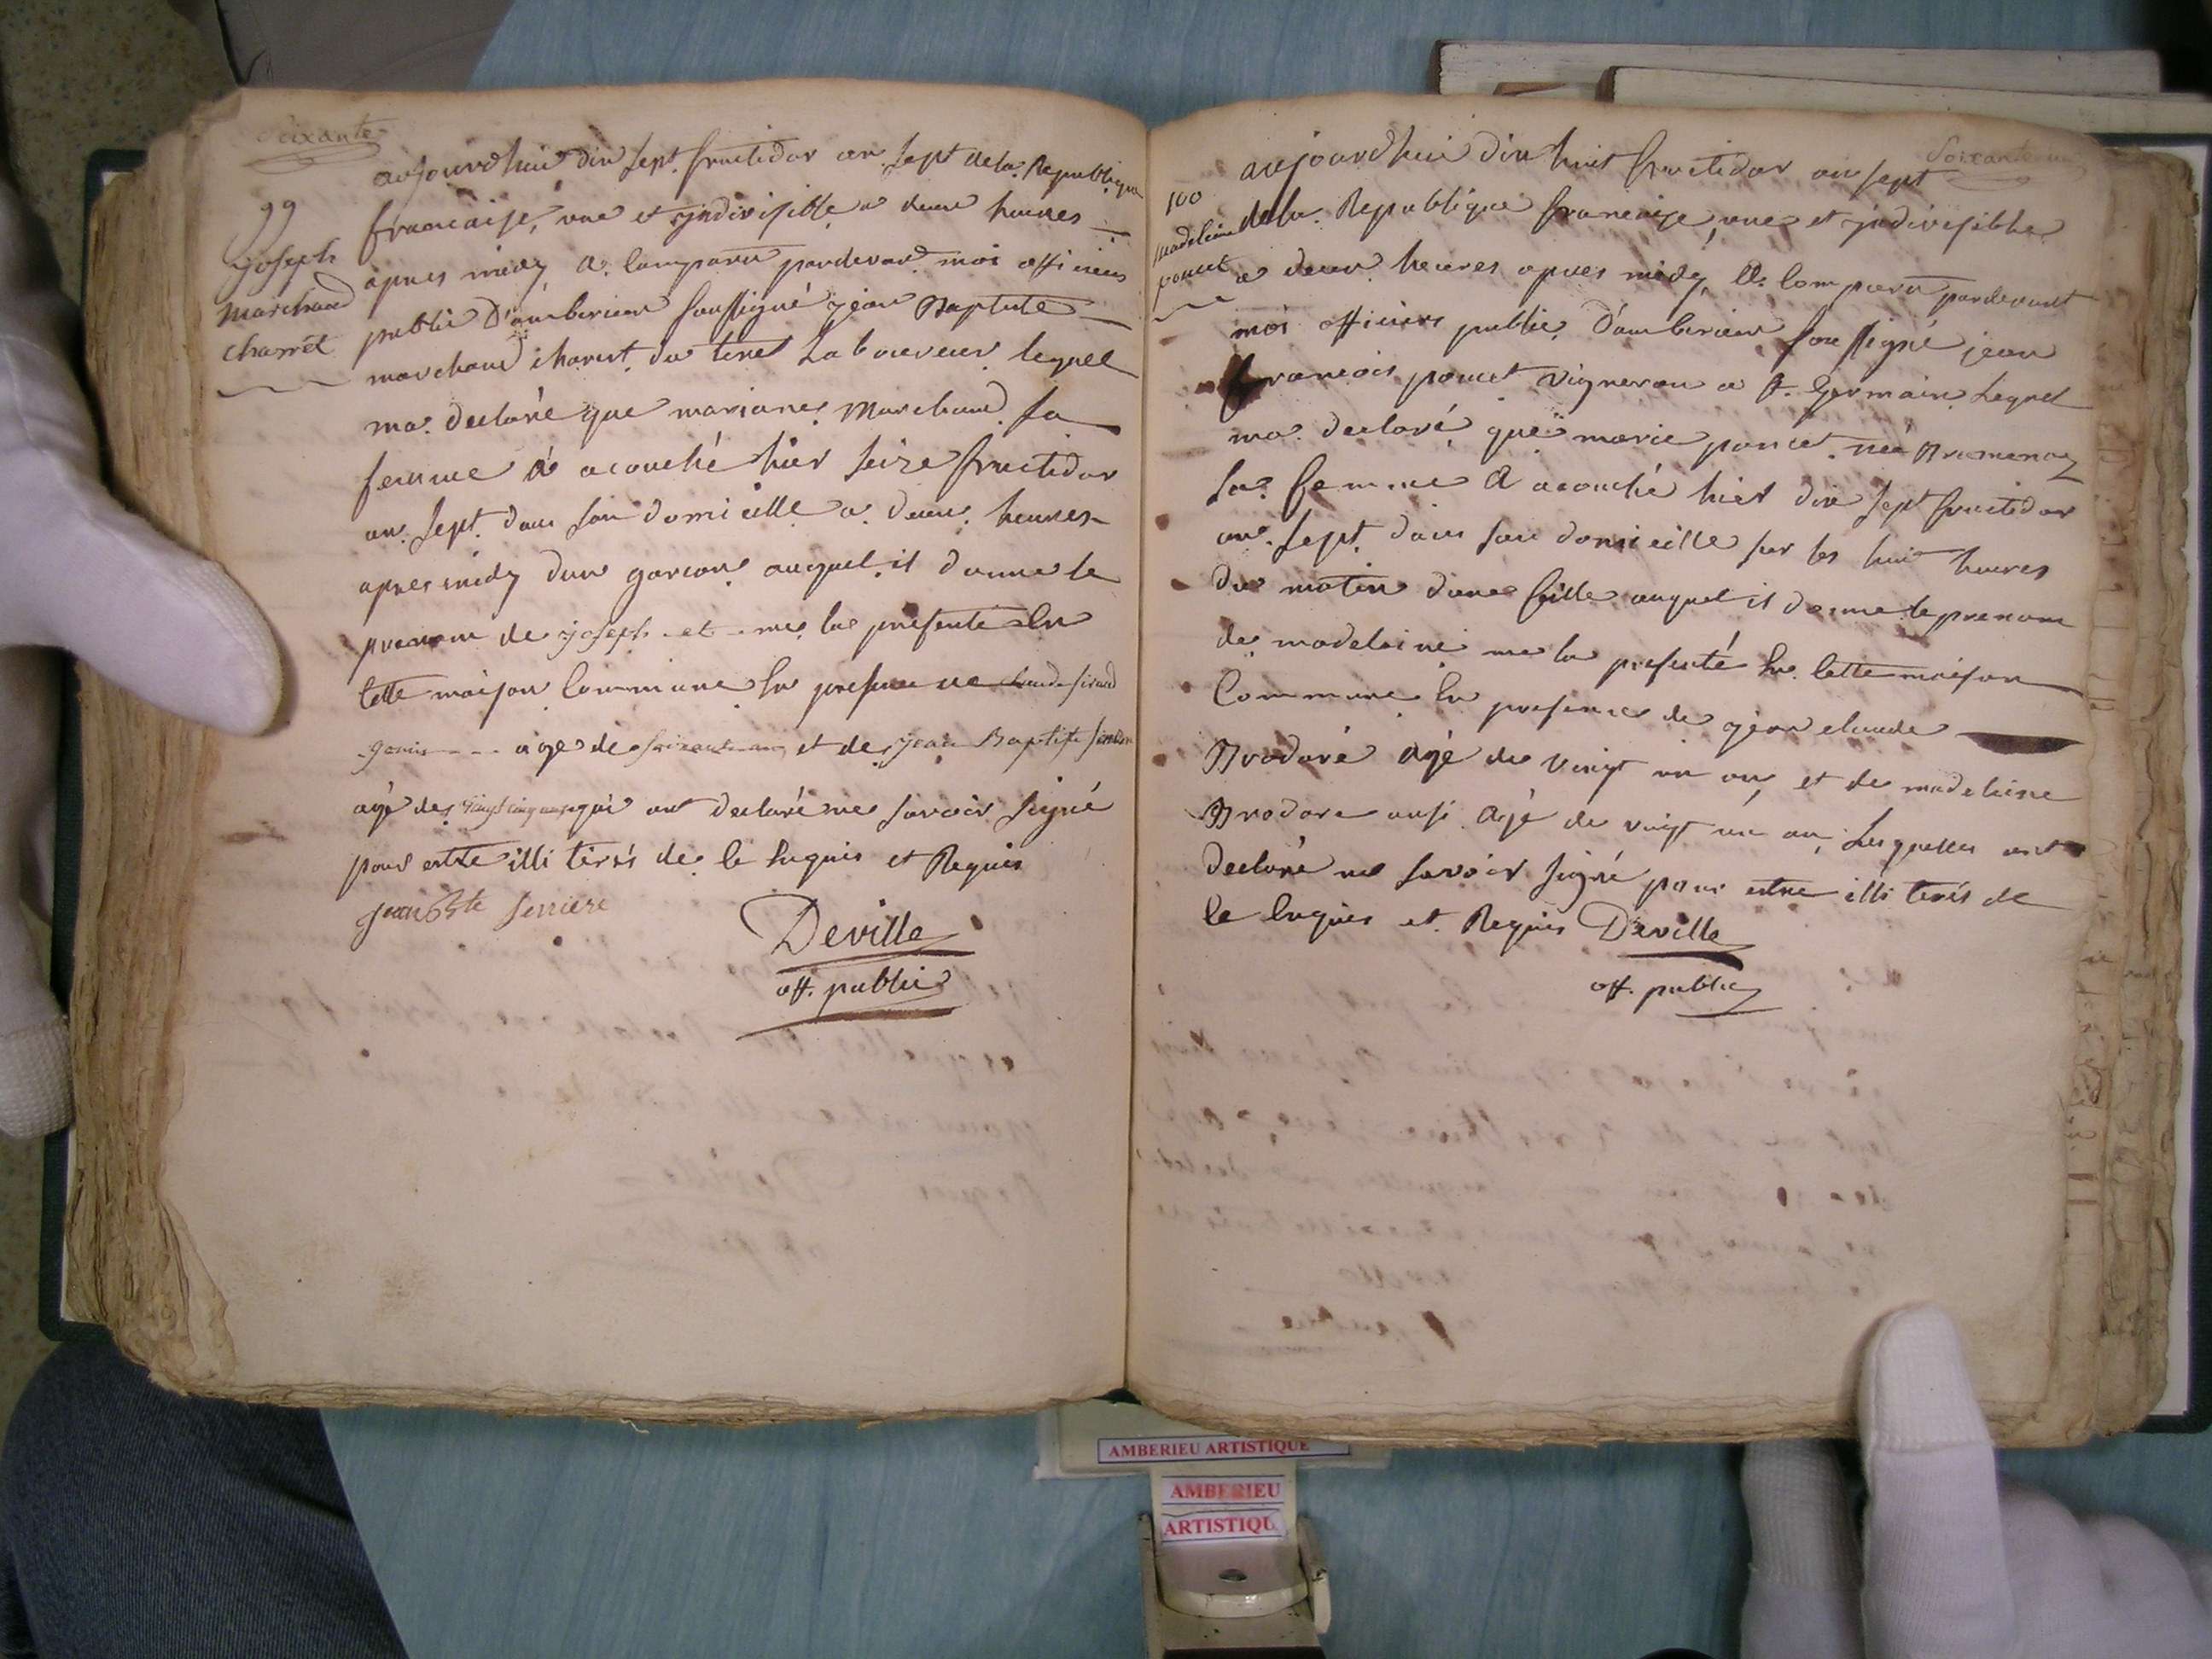 Soixante
99
joseph
marchand
charret
aujourd'hui dix sept fructidor an sept dela Republique
francaise, une et jndivisible a deux heures
apres midy a comparu pardevant moi officiers
public D'amberieu soussigné jean Baptiste
marchand charret du tiret Laboureur lequel
ma declaré que mariane Marchand sa
femme a acouché hier seize fructidor
an sept dans son domicille a deux heures
apres midy dun garcon auquel il donne le
prenom de joseph et me la presenté en
cette maison commune en presence de claude
agé de et de jean Baptiste
agé de vingt cinq ans qui ont declaré ne savoir signé
pour estre illiterés de ce enquis et Requis
jean Bte serriere
Deville
off. public
Soixante un
100
madeleine
poncet
aujourd'hui dix huit fructidor an sept
dela Republique francaise, une et jndivisible
a deux heures apres midy a comparu pardevant
moi officiers public d'amberieu soussigné jean
francois poncet vigneron a st. germain Lequel
ma declaré que marie poncet née Bramenoz
sa femme a acouché hier dix sept fructidor
an sept dans son domicille sur les huit heures
du matin dune fille auquel il donne le prenom
de madeleine me la presenté en cette maison
commune en presence de jean claude
Brodaré agé de vingt un ans et de madeleine
Brodare ausi agé de vingt un an Lesquelles ont
declaré ne savoir signé pour estre illiterés de
ce enquis et Requis Deville
off. public
AMBERIEU ARTISTIQUE
AMBERIEU
ARTISTIQU